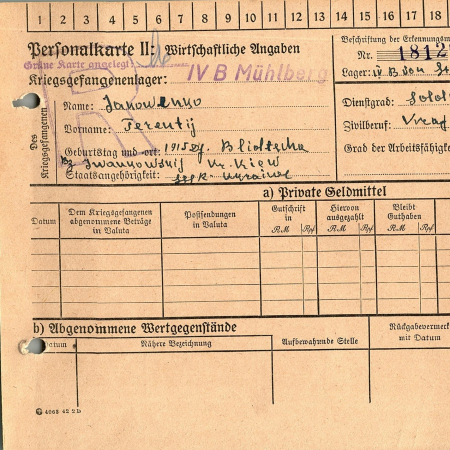 1 2 3 4 5 6 7 8 9 10 11 12 13 14 15 16 17 18
Personalkarte II: Wirtschaftliche Angaben
Beschriftung der Erkennungsm
Grüne Karte angelegt:
Nr. 1812
Kriegsgefangenenlager: IV B Mühlberg
Lager: IV B
Des Kriegsgefangenen
Name: Janowenko
Dienstgrad: Sold
Vorname: Terentij
Zivilberuf:
Geburtstag und -ort: 1915 Blidtscha
Grad der Arbeitsfähigke
Iwankowskij Kiew
Staatsangehörigkeit: Ukraine
a) Private Geldmittel
Datum
Dem Kriegsgefangenen abgenommene Beträge in Valuta
Postsendungen in Valuta
Gutschrift in
RM Rpf
Hiervon ausgezahlt
RM Rpf
Bleibt Guthaben
RM Rpf
b) Abgenommene Wertgegenstände
Datum
Nähere Bezeichnung
Aufbewahrende Stelle
Rückgabevermerk
mit Datum
4063 42 2D